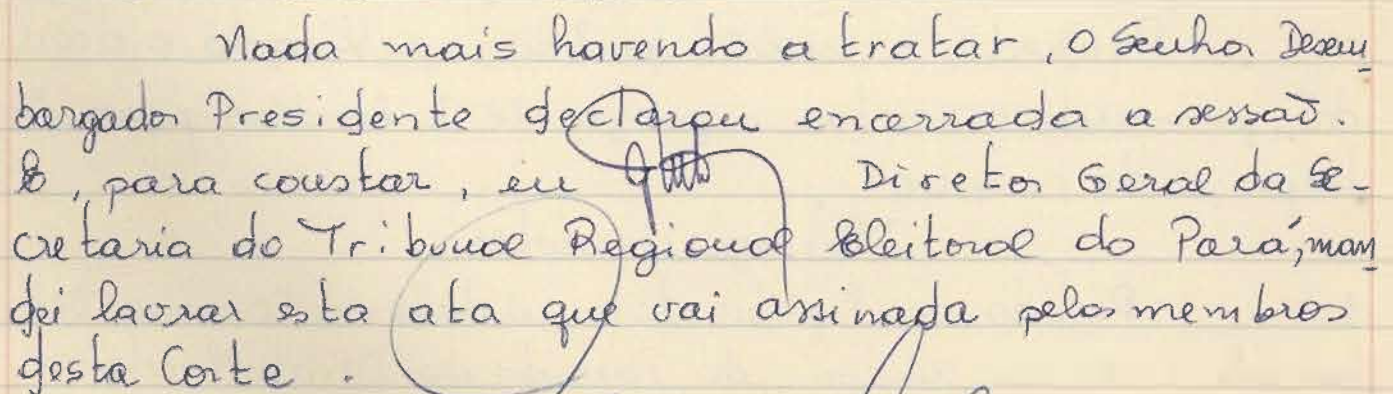 Nada mais havendo a tratar, o Senhor Desem
bargador Presidente declarou encerrada a sessão.
E, para constar, eu Diretor Geral da Se-
cretaria do Tribunal Regional Eleitoral do Pará, man
dei lavrar esta ata que vai assinada pelos membros
desta Corte.